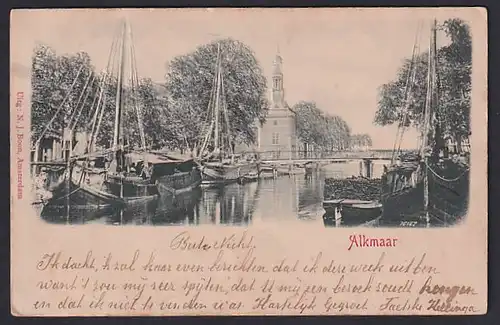 Uitg: N. J. Boon, Amsterdam
Alkmaar
Beste Nicht.
Ik dacht, ik zal haar even berichten dat ik dere week uitbon
want 't zou mij zeer spijten, dat U mij een beroek zoudt brengen
en dat ik niet te vinden was. Hartelijk Gegroet.